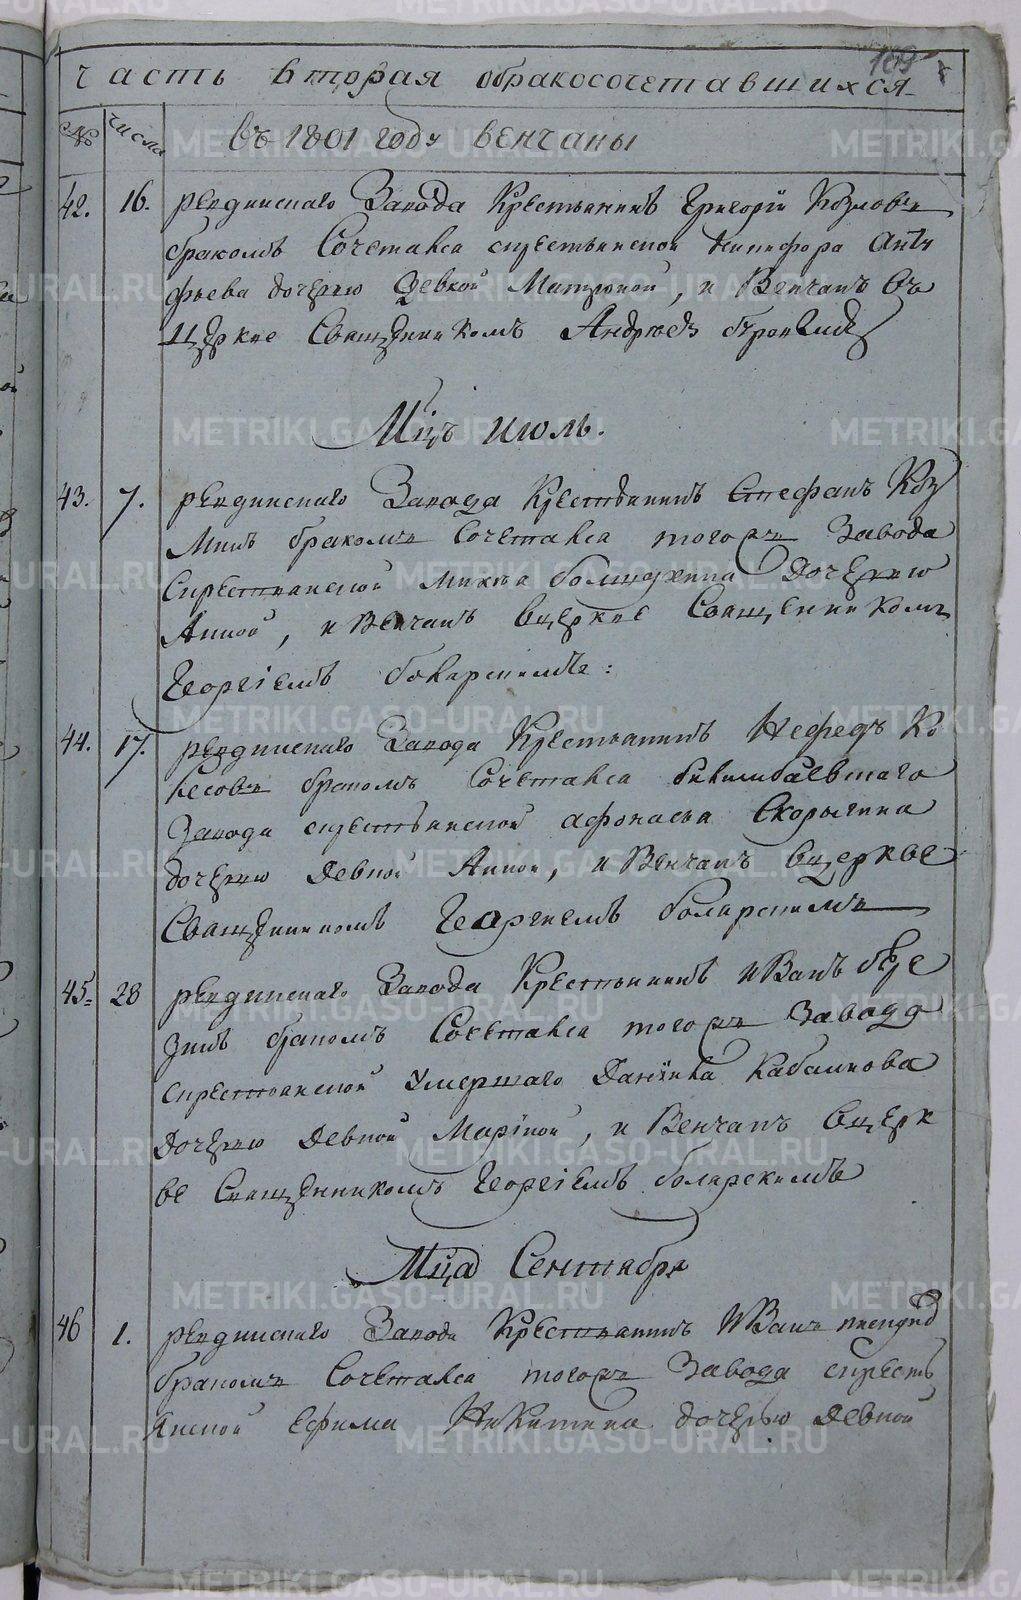 189
часть вторая обракосочетавшихся
№ числа въ 1801 году венчаны
42. 16. ревдинскаго Завода Крестьянинъ Григорiй Козловъ
бракомъ Сочетался скрестьянской Никифора Анти
фьева дочерью Девкой Матреной, и Венчанъ въ
церкве Священникомъ Андреемъ
Мцъ июль.
43. 7. ревдинскаго Завода Крестьянинъ Стефанъ Коз
минъ бракомъ Сочетался тогожъ Завода
Скрестьянской дочерью
Анной, и Венчанъ вцеркве Священникомъ
Георгiемъ боярскимъ:
44. 17. ревдинскаго Завода Крестьянинъ Нефедъ Ко
бракомъ Сочетался билимбаевскаго
Завода скрестьянской афонасья Скорынина
дочерью девкой Анной, и Венчанъ вцеркве
Священникомъ Георгиемъ боярскимъ
45. 28 ревдинскаго Завода Крестьянинъ иванъ бере
зинъ бракомъ Сочетался тогожъ Завода
скрестьянской умершаго Данила Кабалинова
дочерью девкой Марiной, и Венчанъ Вцерк
ве Священникомъ Георгiемъ боярскимъ
Мца Сентября
46 1. ревдинскаго Завода Крестьянинъ иванъ
бракомъ Сочетался тогожъ Завода скресть
янской ефима Никитина дочерью девкой
METRIKI.GASO-URAL.RU